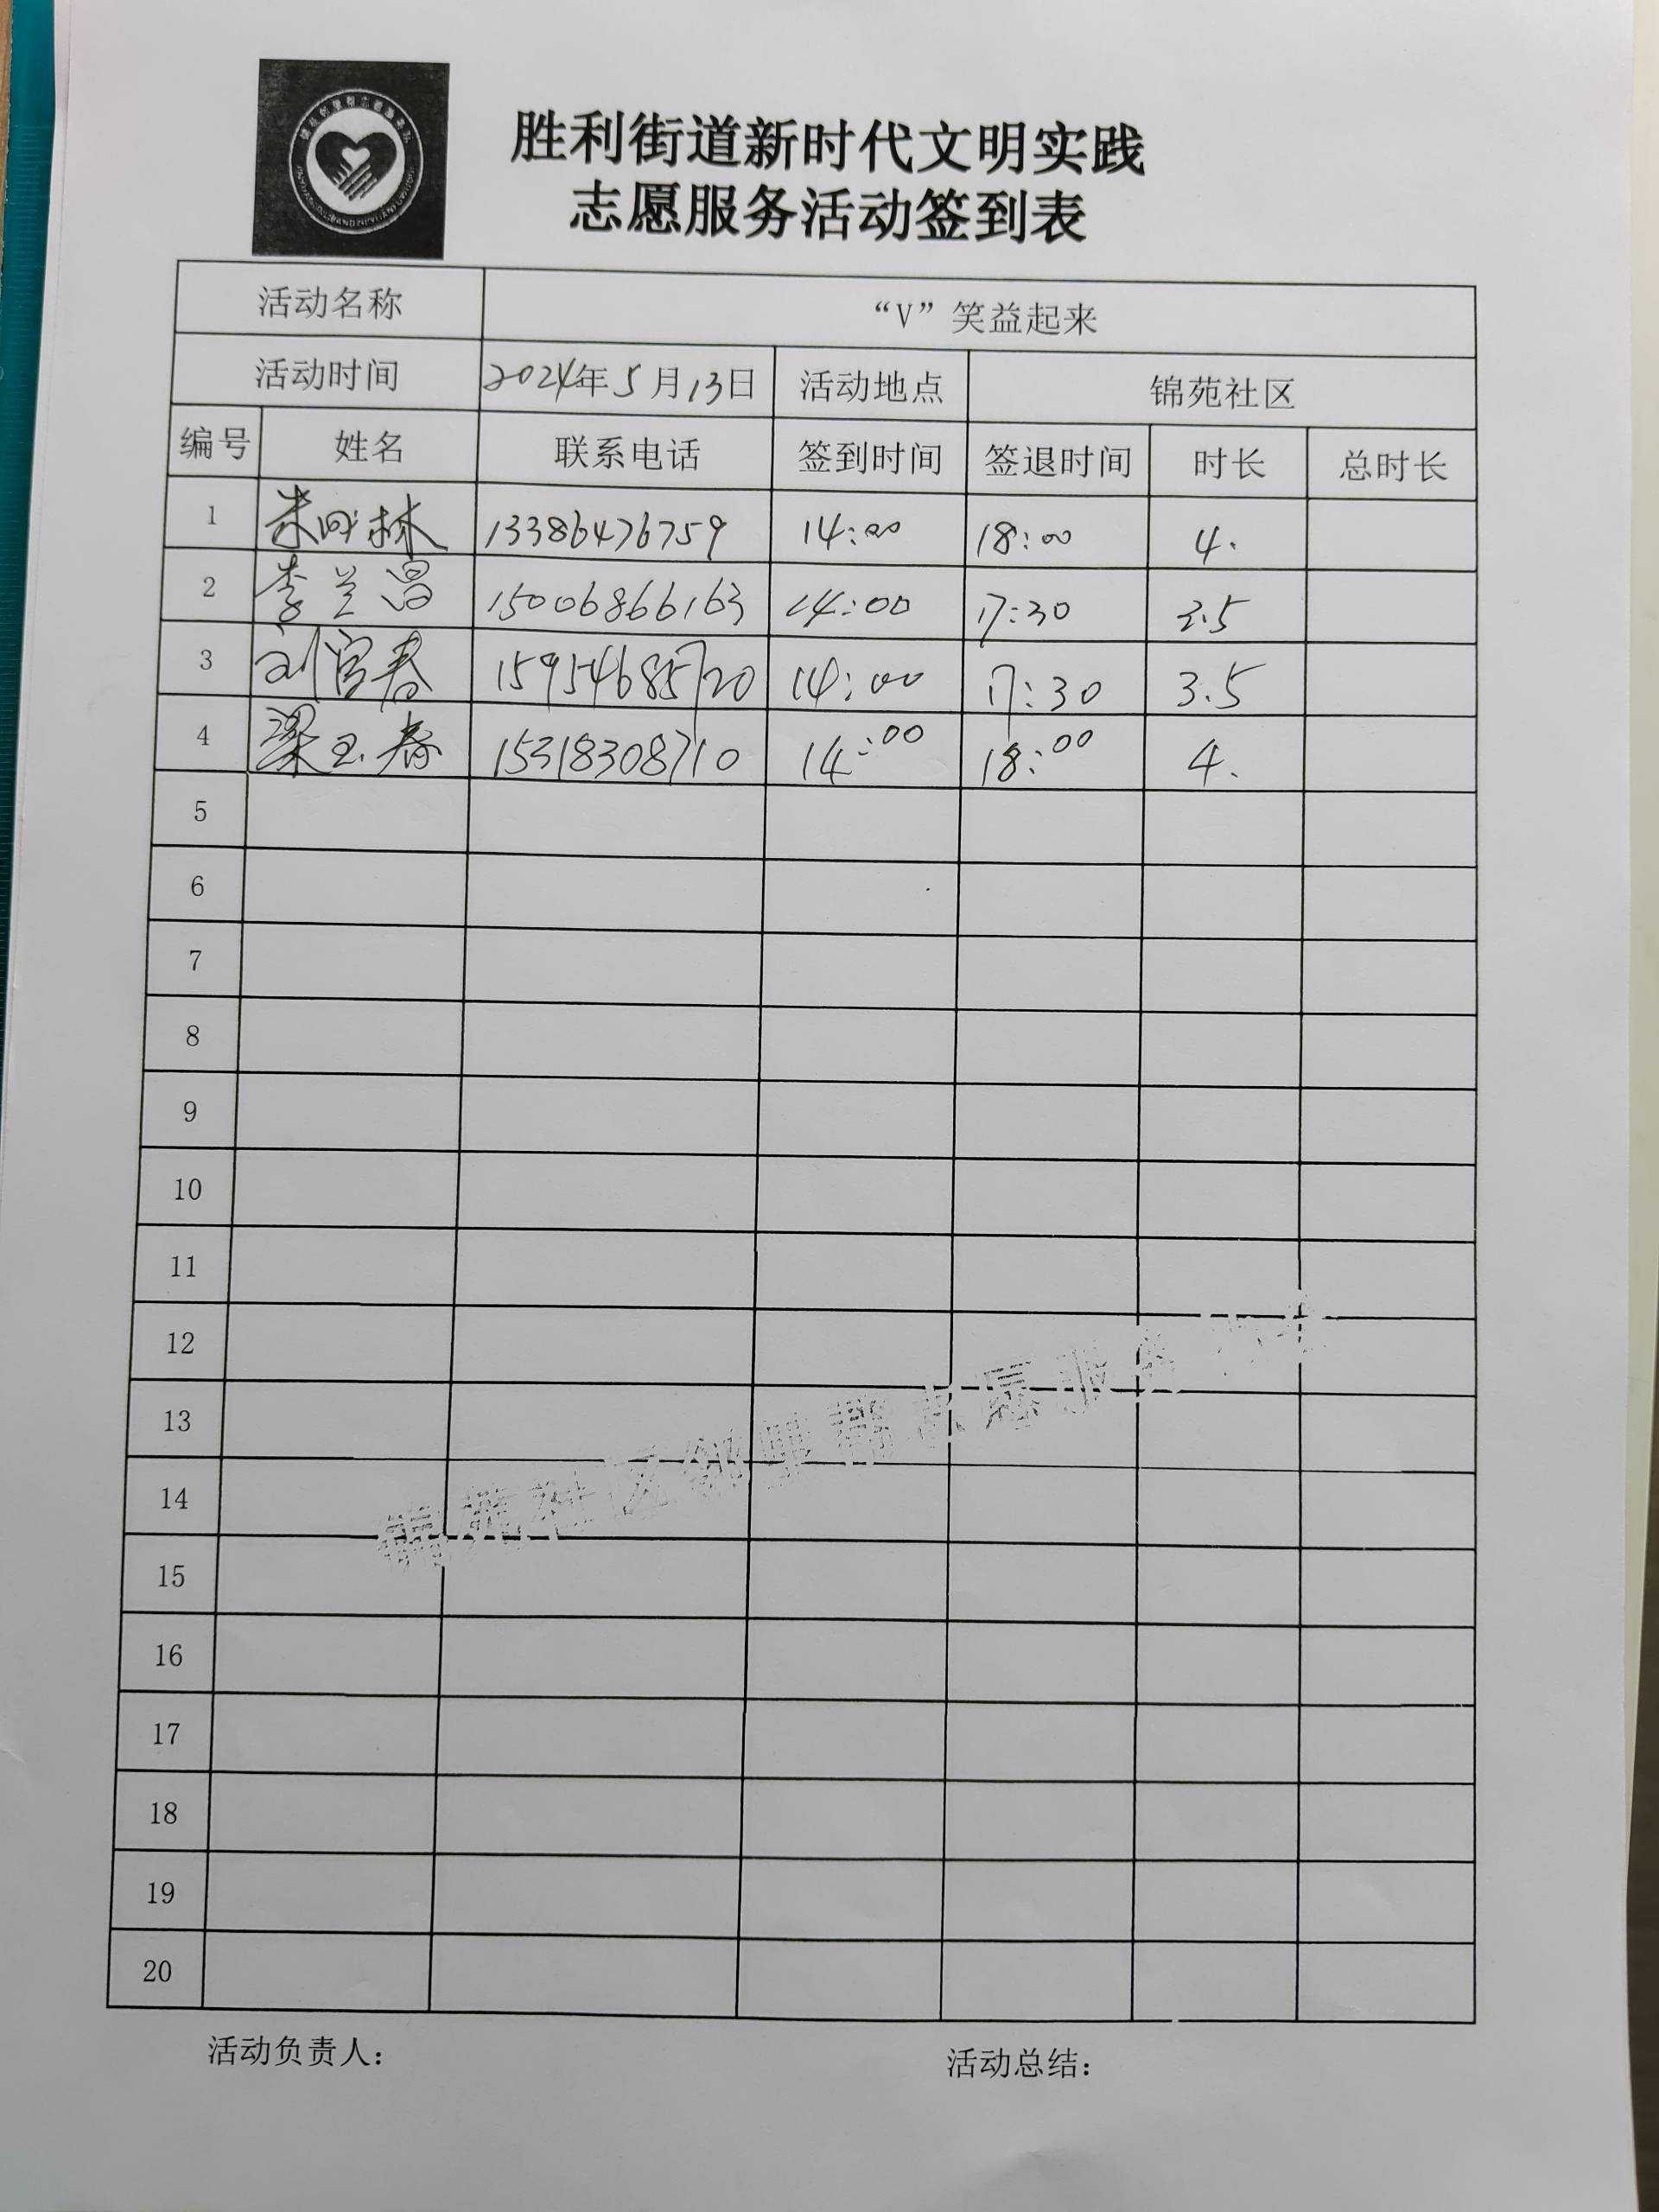 胜利街道新时代文明实践
志愿服务活动签到表
活动名称 “V”笑益起来
活动时间 2024年5月13日 活动地点 锦苑社区
编号 姓名 联系电话 签到时间 签退时间 时长 总时长
1 林 13386476759 14:00 18:00 4.
2 李兰昌 15006866163 14:00 17:30 3.5
3 刘宫春 15954685720 14:00 17:30 3.5
4 梁玉春 15318308710 14:00 18:00 4.
5
6
7
8
9
10
11
12
13
14
15
16
17
18
19
20
锦苑社区邻里帮志愿服务
活动负责人: 活动总结: